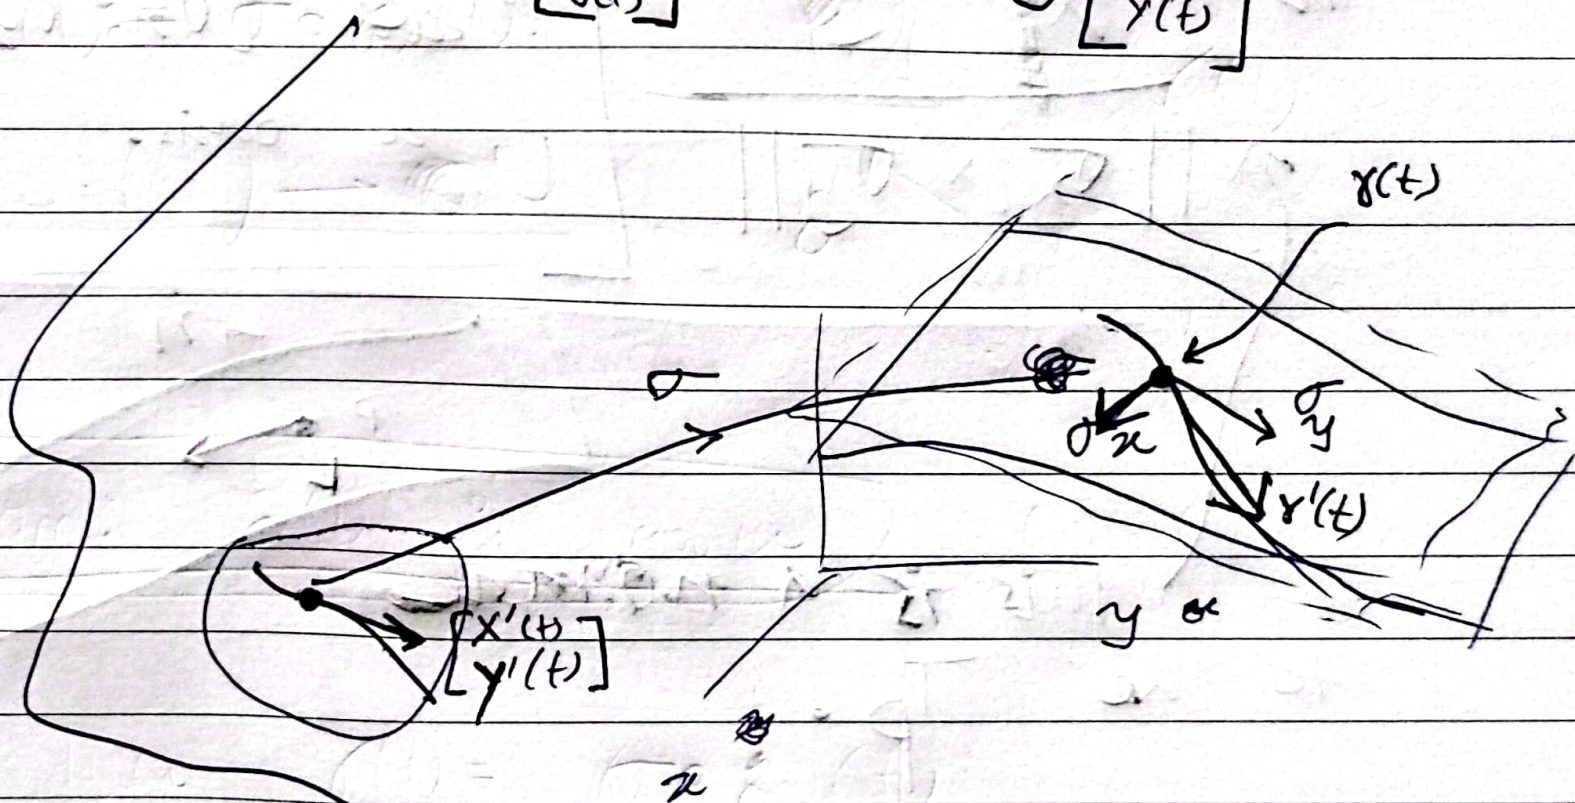 Y(t)
γ(t)
σ
σx
σy
γ'(t)
[X'(t)
Y'(t)]
y
x